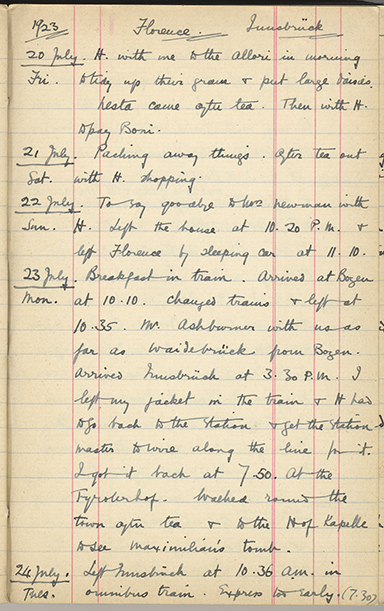 1923 Florence. Innsbrück
20 July. H. with me to the Allori in morning
Fri. to tidy up their grave & put large daisies.
Nesta came after tea. Then with H.
to pay Boni.
21 July. Packing away things. After tea out
Sat. with H. shopping.
22 July. To say goodbye to Mrs Newman with
Sun. H. Left the house at 10.20 P.M. &
left Florence by sleeping car at 11.10.
23 July. Breakfast in train. Arrived at Bozen
Mon. at 10.10. changed trains & left at
10.35. Mr. Ashburner with us as
far as Waidebrück from Bozen.
Arrived Innsbrück at 3.30 P.M. I
left my jacket in the train & H had
to go back to the Station & get the Station
master to wire along the line for it.
I got it back at 7.50. At the
Tyrolerhof. Walked round the
town after tea & to the Hof Kapelle
to see Maximilian's tomb.
24 July. Left Innsbrück at 10.36 A.M. in
Tues. omnibus train. Express too early. (7.30)